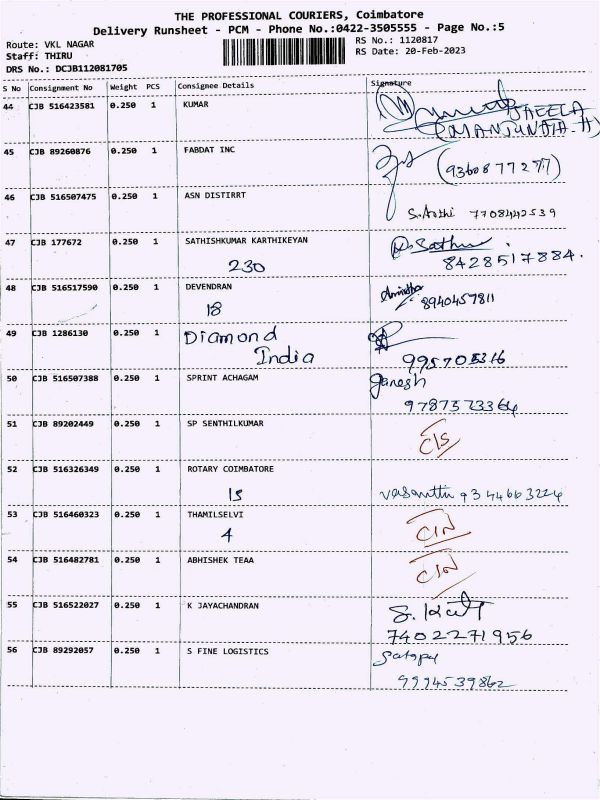 THE PROFESSIONAL COURIERS, Coimbatore
Delivery Runsheet - PCM - Phone No.:0422-3505555 - Page No.:5
Route: VKL NAGAR
RS No.: 1120817
Staff: THIRU
RS Date: 20-Feb-2023
DRS No.: DCJB112081705
S No Consignment No Weight PCS Consignee Details Signature
44 CJB 516423581 0.250 1 KUMAR
(MANJUNATA.H)
45 CJB 89260876 0.250 1 FABDAT INC
(9360877277)
46 CJB 516507475 0.250 1 ASN DISTIRRT
7708442539
47 CJB 177672 0.250 1 SATHISHKUMAR KARTHIKEYAN
230 8428517884.
48 CJB 516517590 0.250 1 DEVENDRAN
18 8940457811
49 CJB 1286130 0.250 1 Diamond
India
50 CJB 516507388 0.250 1 SPRINT ACHAGAM ganesh
9787573364
51 CJB 89202449 0.250 1 SP SENTHILKUMAR
52 CJB 516326349 0.250 1 ROTARY COIMBATORE
15 9344663224
53 CJB 516460323 0.250 1 THAMILSELVI
4
54 CJB 516482781 0.250 1 ABHISHEK TEAA
55 CJB 516522027 0.250 1 K JAYACHANDRAN
7402271956
56 CJB 89292057 0.250 1 S FINE LOGISTICS
9994539862